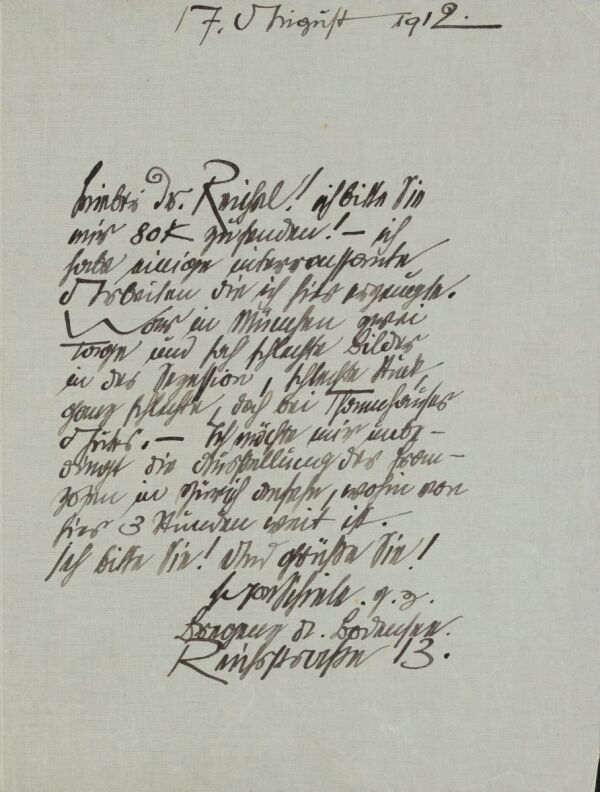 17. August 1912.
Liebster Dr. Reichel! ich bitte Sie
mir 80 K zusenden! – ich
habe einige interressante
Arbeiten die ich hier erzeugte.
War in München zwei
Tage und sah schlechte Bilder
in der Sezession, schlechte Stuck,
ganz schlechte, doch bei Thannhauser
Gutes. – Ich möchte mir unbe-
dingt die Ausstellung der Fran-
zosen in Zürich ansehen, wohin von
hier 3 Stunden weit ist.
Ich bitte Sie! Und grüße Sie!
Egon Schiele. g. z.
Bregenz a. Bodensee.
Reichsstrasse 13.